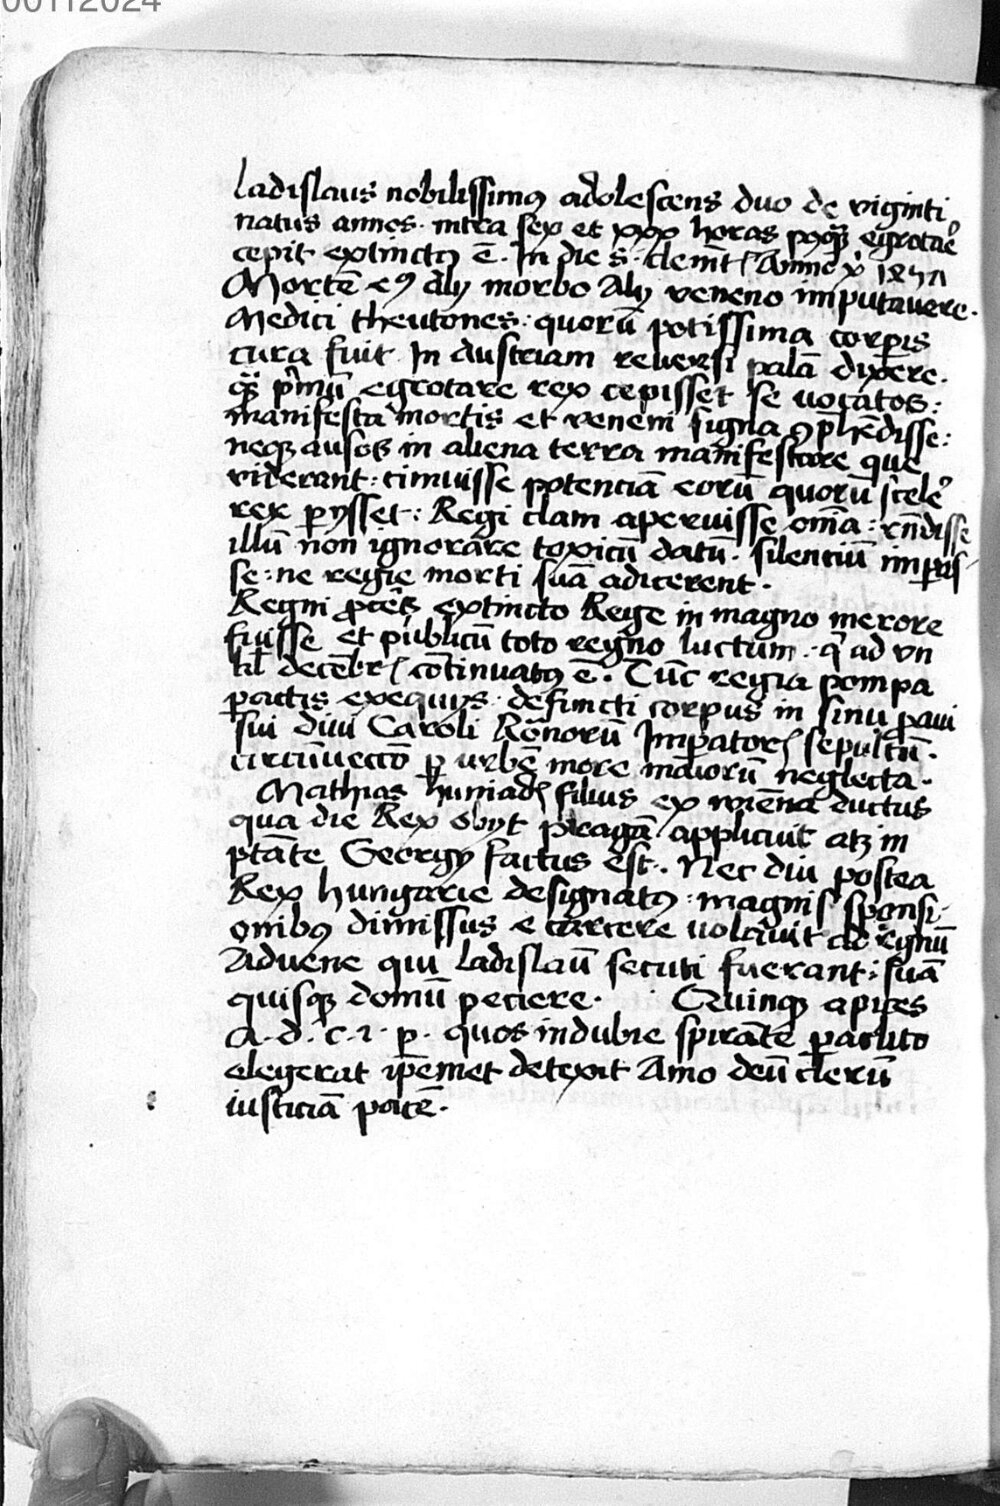 00112024
ladislaus nobilissimꝰ adolescens duo de viginti
natus annos. intra sex et xxx horas posqᷓ egrotaᵉ
cepit extinctꝰ ē. In die s. clemēt
Mortē eꝰ alij morbo Alij veneno imputavere.
Medici theutones: quorū potissima corpis
cura fuit In Austriam reversi palā dixere.
primū egrotare rex cepisset se vocatos:
manifesta mortis et veneni signa ꝯprehēdisse:
neqꝫ ausos in aliena terra manifestare que
viderant: timuisse potenciā eorū quorū scelẽ
rex pijsset: Regi clam aperuisse omīa: rn̄disse
illū non ignorare toxicū datū. silenciū impas
se: ne regie morti suā adicerent.
Regni ꝓcēs extincto Rege in magno merore
fuisse et publicū toto regno luctum. qͥ ad vn
kl decēbr ꝯtinuatꝰ ē. Tūc regia pompa
pactis exequijs. defuncti corpus in sinu ꝓaui
sui diui Caroli Rōnorū Impator sepultū.
circūvectō ꝑ urbē more maiorū neglecta.
Mathias huniad filius ex wiēna ductus
qua die Rex obijt pragā applicuit atqꝫ in
ptāte Georgij factus est. Nec diu postea
Rex hungarie designatꝰ: magnis sponsi-
onibꝰ dimissus e carcere uolavit ad regnū
Advene qui ladislaū secuti fuerant: suā
quisqꝫ domū peciere. Quinqꝫ apices
a. d. c. i. p. quos indubie spirāte paclito
elegerat ipēmet detexit Amo deū clerū
iusticiā pacē.